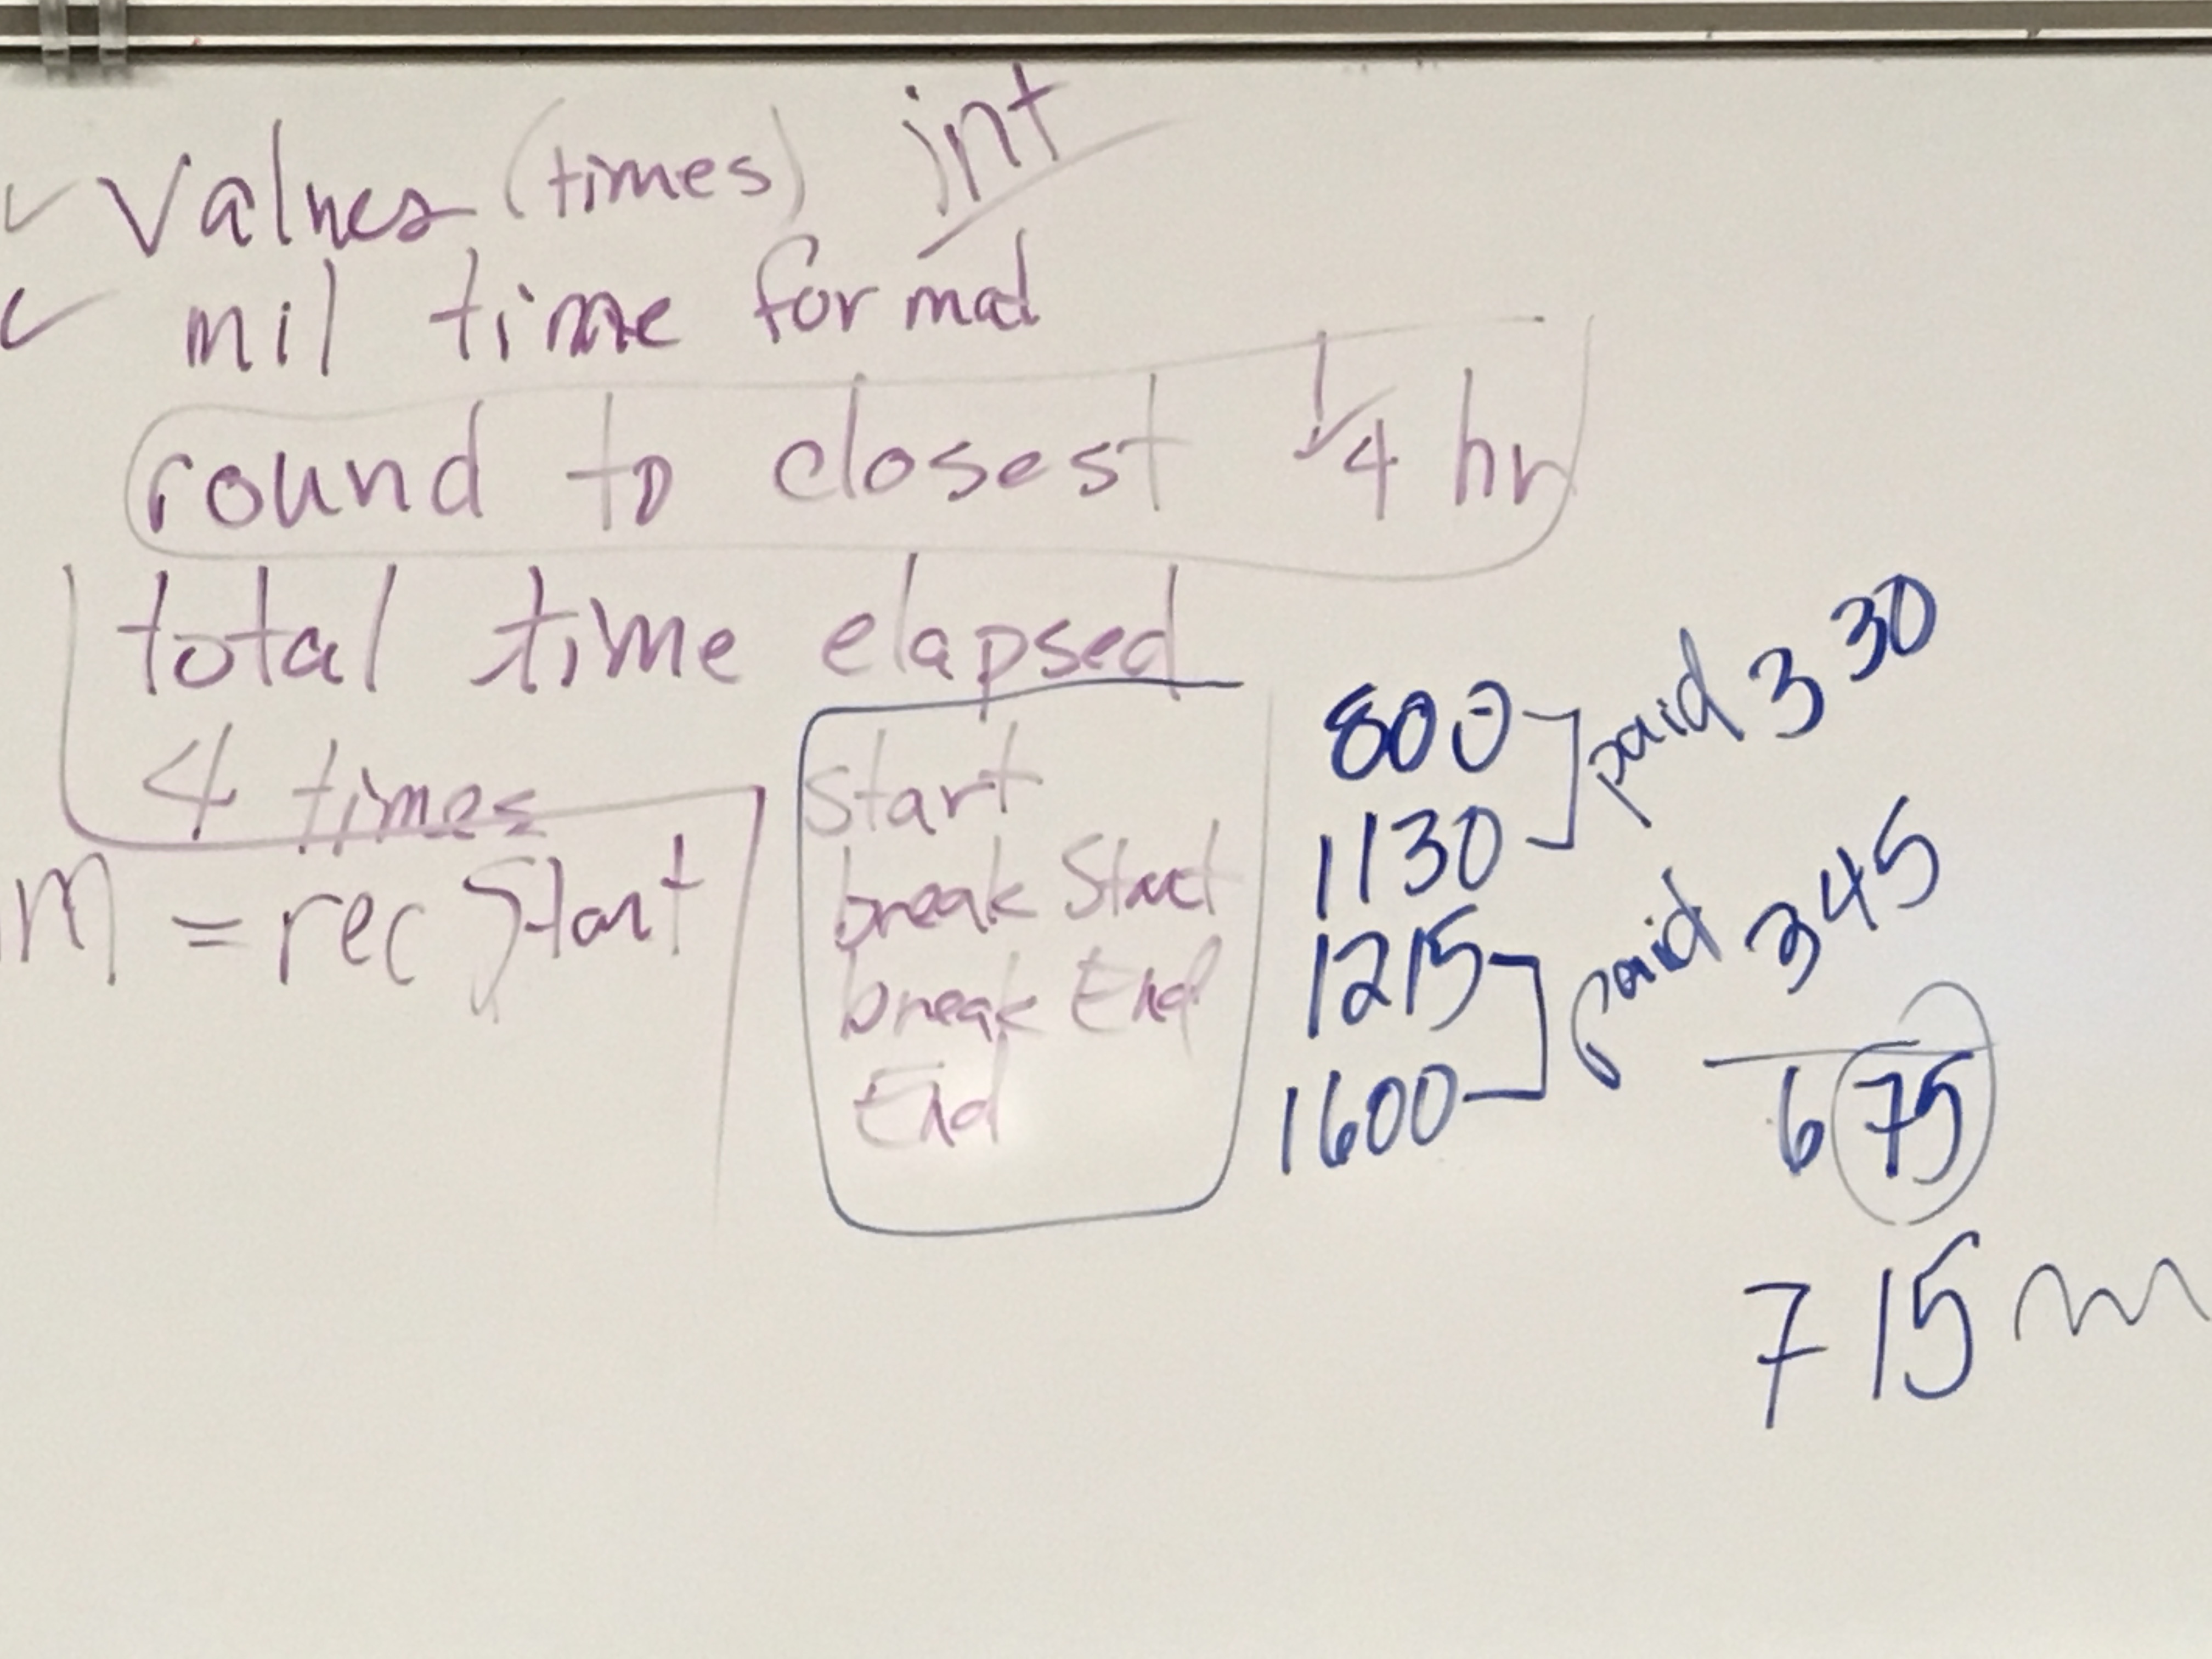 Values (times) int
mil time format
round to closest 1/4 hr
total time elapsed
4 times
m = rec Start
start
break Start
break End
End
800
1130
paid 3 30
1215
1600
paid 3 45
6 75
7 15 m